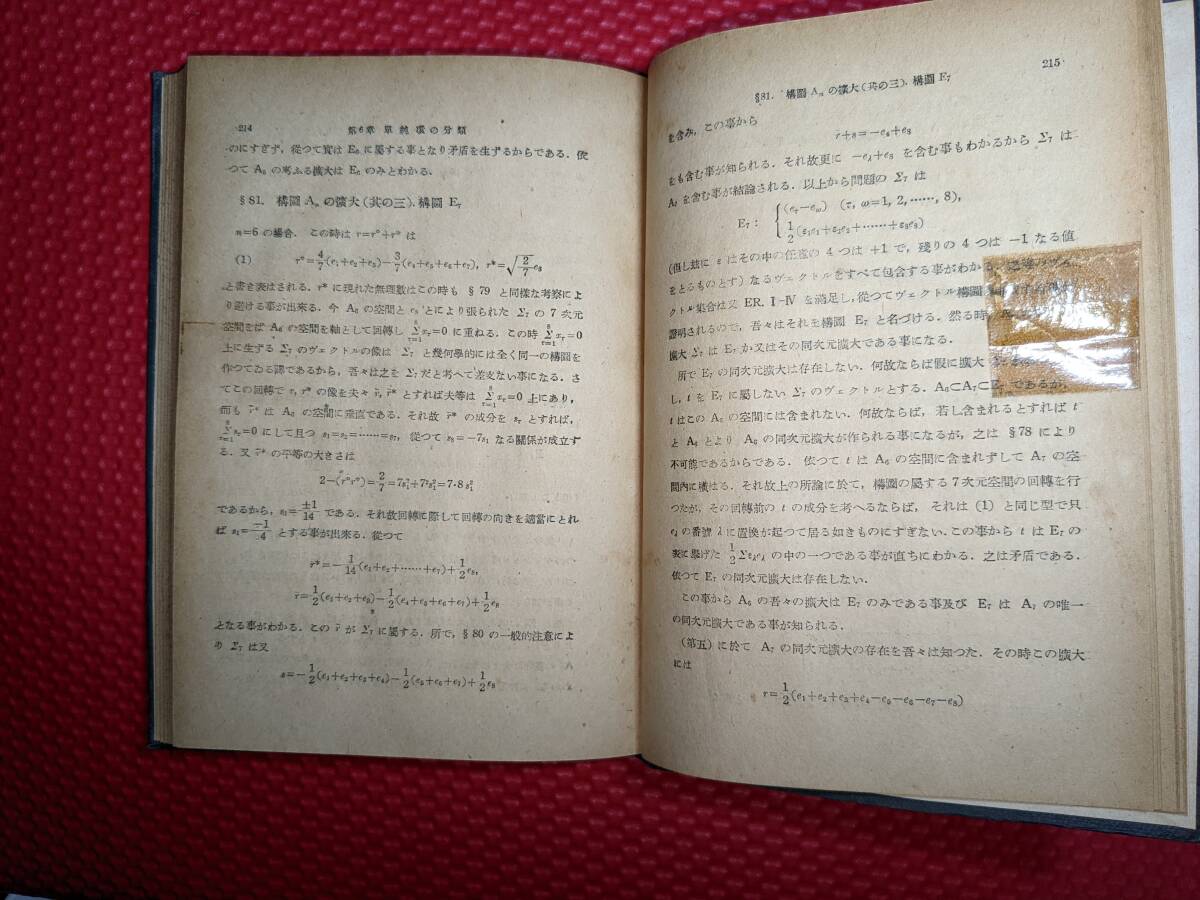 214
第6章 單純環の分類
のにすぎず,從つて實は E₆ に屬する事となり矛盾を生ずるからである.依
つて A₅ の考ふる擴大は E₆ のみとわかる.
§81. 構圖 Aₙ の擴大(其の三).構圖 E₇
n=6 の場合. この時は r=r°+r* は
(1) r°=4/7(e₁+e₂+e₃)−3/7(e₄+e₅+e₆+e₇), r*=√(2/7) e₈
と書き表はされる.r* に現れた無理數はこの時も §79 と同樣な考察によ
り避ける事が出來る.今 A₆ の空間と e₈ とにより張られた Σ₇ の 7 次元
空間をば A₆ の空間を軸として回轉し Σxτ=0 に重ねる.この時 Σxτ=0
上に生ずる Σ₇ のヴェクトルの像は Σ₇ と幾何學的には全く同一の構圖を
作つてゐる譯であるから,吾々は之を Σ₇ だと考へて差支ない事になる.さ
てこの回轉で r, r* の像を夫々 r̄, r̄* とすれば夫等は Σxτ=0 上にあり,
而も r̄* は A₆ の空間に垂直である.それ故 r̄* の成分を sτ とすれば,
Σsτ=0 にして且つ s₁=s₂=……=s₇, 從つて s₈=−7s₁ なる關係が成立す
る.又 r̄* の平等の大きさは
2−(r°r°)=2/7=7s₁²+7²s₁²=7·8 s₁²
であるから,s₁=±1/14 である.それ故回轉に際して回轉の向きを適當にとれ
ば s₁=−1/14 とする事が出來る.從つて
r̄*=−1/14(e₁+e₂+……+e₇)+1/2 e₈,
r̄=1/2(e₁+e₂+e₃)−1/2(e₄+e₅+e₆+e₇)+1/2 e₈
となる事がわかる.この r̄ が Σ₇ に屬する.所で,§80 の一般的注意によ
り Σ₇ は又
s=−1/2(e₁+e₂+e₃+e₄)−1/2(e₅+e₆+e₇)+1/2 e₈
§81. 構圖 Aₙ の擴大(其の三).構圖 E₇
215
を含み,この事から
r+s=−e₄+e₈
をも含む事が知られる.それ故更に −eλ+e₈ を含む事もわかるから Σ₇ は
A₇ を含む事が結論される.以上から問題の Σ₇ は
E₇: (eτ−eω) (τ, ω=1, 2, ……, 8),
1/2(ε₁e₁+ε₂e₂+……+ε₈e₈)
(但し玆に ε はその中の任意の 4 つは +1 で,殘りの 4 つは −1 なる値
をとるものとす)なるヴェクトルをすべて包含する事がわかる.
クトル集合は又 ER. Ⅰ-Ⅳ を滿足し,從つてヴェクトル構圖
證明されるので,吾々はそれを構圖 E₇ と名づける.然る時
擴大 Σ₇ は E₇ か又はその同次元擴大である事になる.
所で E₇ の同次元擴大は存在しない.何故ならば假に擴大
し,t を E₇ に屬しない Σ₇ のヴェクトルとする.A₆⊂A₇⊂E₇ であるが,
t はこの A₆ の空間には含まれない.何故ならば,若し含まれるとすれば t
と A₆ とより A₆ の同次元擴大が作られる事になるが,之は §78 により
不可能であるからである.依つて t は A₆ の空間に含まれずして A₇ の空
間內に橫はる.それ故上の所論に於て,構圖の屬する 7 次元空間の回轉を行
つたが,その回轉前の t の成分を考へるならば,それは (1) と同じ型で只
eλ の番號 λ に置換が起つて居る如きものにすぎない.この事から t は E₇ の
表に擧げた 1/2 Σελeλ の中の一つである事が直ちにわかる.之は矛盾である.
依つて E₇ の同次元擴大は存在しない.
この事から A₆ の吾々の擴大は E₇ のみである事及び E₇ は A₇ の唯一
の同次元擴大である事が知られる.
(第五)に於て A₇ の同次元擴大の存在を吾々は知つた.その時この擴大
には
r=1/2(e₁+e₂+e₃+e₄−e₅−e₆−e₇−e₈)